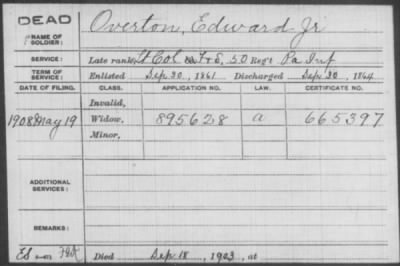 DEAD
NAME OF SOLDIER: Overton, Edward Jr
SERVICE: Late rank, Lt Col F&S, 50 Reg't Pa Inf
TERM OF SERVICE: Enlisted Sep. 30, 1861 Discharged Sep. 30, 1864
DATE OF FILING. CLASS. APPLICATION NO. LAW. CERTIFICATE NO.
Invalid,
1908 May 19 Widow, 895628 a 665397
Minor,
ADDITIONAL SERVICES:
REMARKS:
Died Sep. 18, 1903, at